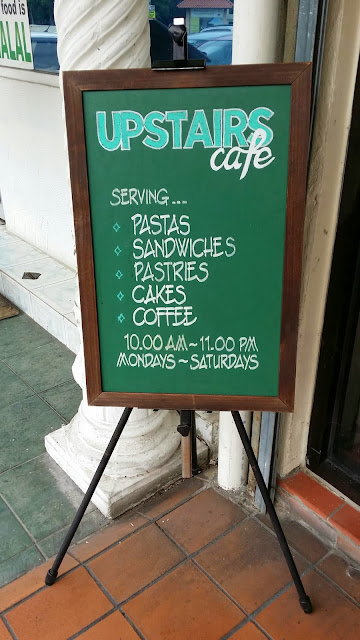 food is
HALAL
UPSTAIRS
cafe
SERVING...
PASTAS
SANDWICHES
PASTRIES
CAKES
COFFEE
10.00 AM ~ 11.00 PM
MONDAYS ~ SATURDAYS